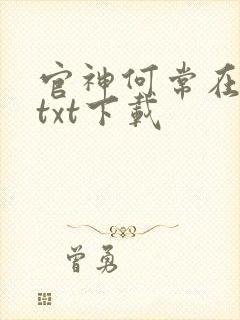 官神何常在
txt下載
曾勇